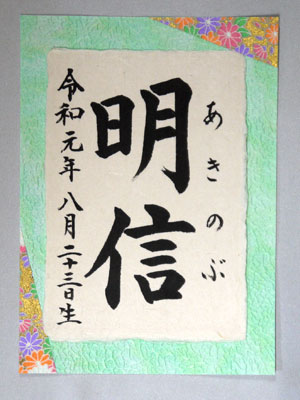 あきのぶ
明信
令和元年八月二十三日生